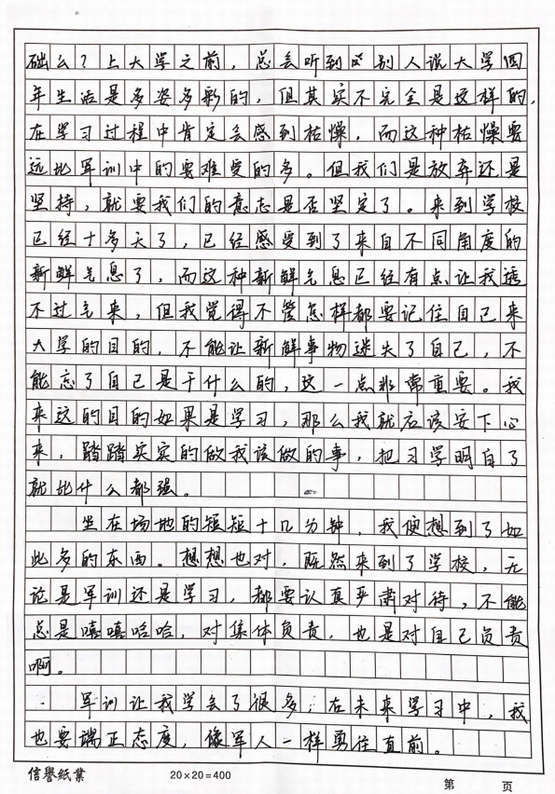 础么？上大学之前，总会听到别人说大学四
年生活是多姿多彩的，但其实不完全是这样的，
在学习过程中肯定会感到枯燥，而这种枯燥要
远比军训中的要难受的多。但我们是放弃还是
坚持，就要我们的意志是否坚定了。来到学校
已经十多天了，已经感受到了来自不同角度的
新鲜气息了，而这种新鲜气息已经有点让我透
不过气来，但我觉得不管怎样都要记住自己来
大学的目的，不能让新鲜事物迷失了自己，不
能忘了自己是干什么的，这一点非常重要。我
来这的目的如果是学习，那么我就应该安下心
来，踏踏实实的做我该做的事，把习学明白了
就比什么都强。
坐在场地的短短十几分钟，我便想到了如
此多的东西。想想也对，既然来到了学校，无
论是军训还是学习，都要认真严肃对待，不能
总是嘻嘻哈哈，对集体负责，也是对自己负责
啊。
军训让我学会了很多；在未来学习中，我
也要端正态度，像军人一样勇往直前。
信誉紙業 20×20=400 第 页